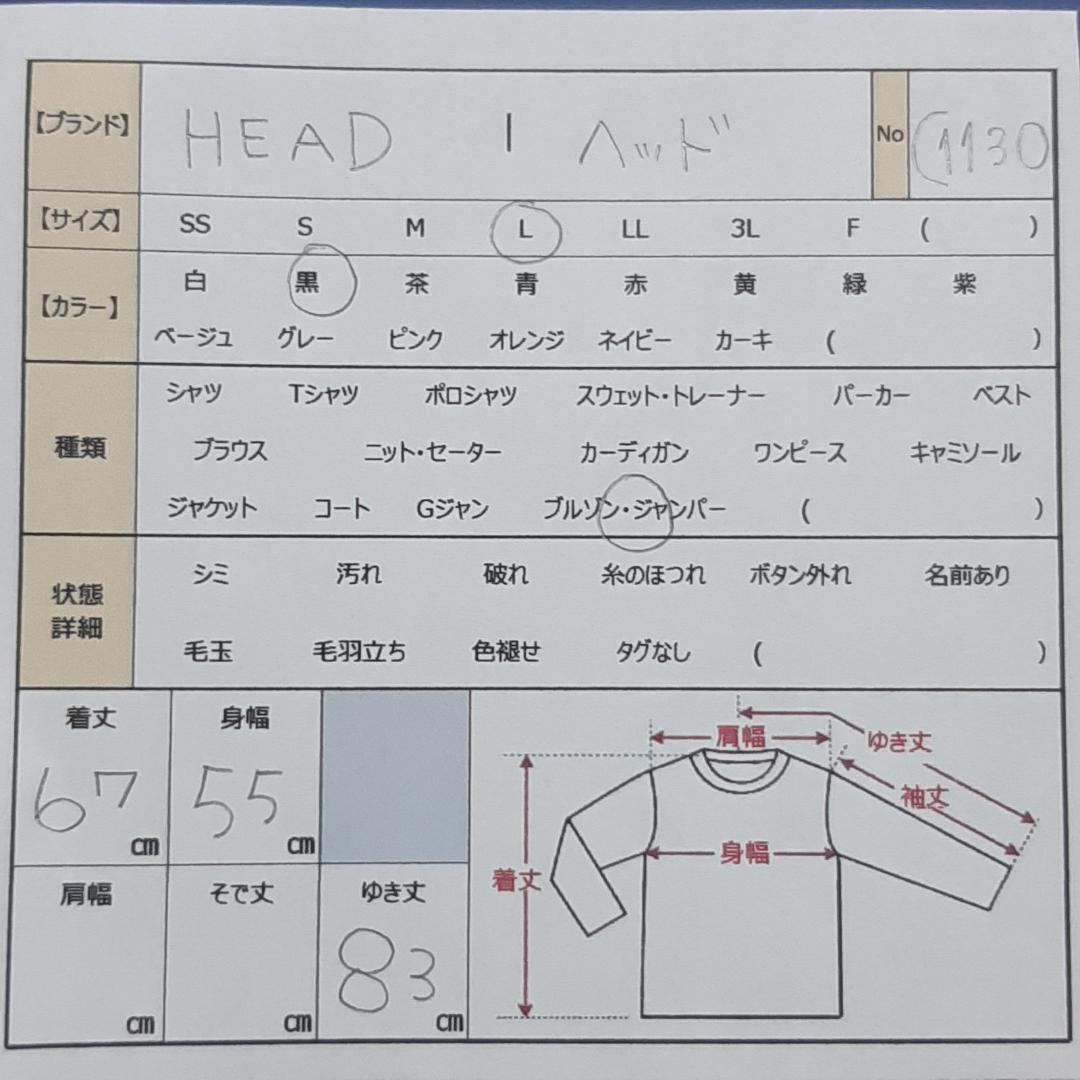 【ブランド】 HEAD | ヘッド No (1130
【サイズ】 SS S M L LL 3L F ( )
【カラー】 白 黒 茶 青 赤 黄 緑 紫
ベージュ グレー ピンク オレンジ ネイビー カーキ ( )
シャツ Tシャツ ポロシャツ スウェット・トレーナー パーカー ベスト
種類 ブラウス ニット・セーター カーディガン ワンピース キャミソール
ジャケット コート Gジャン ブルゾン・ジャンパー ( )
状態詳細 シミ 汚れ 破れ 糸のほつれ ボタン外れ 名前あり
毛玉 毛羽立ち 色褪せ タグなし ( )
着丈 身幅
67 cm 55 cm
肩幅 そで丈 ゆき丈
cm cm 83 cm
肩幅 ゆき丈
袖丈
身幅
着丈